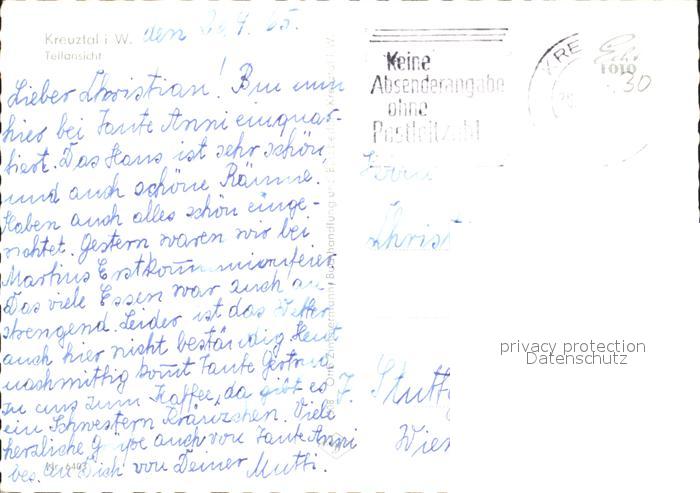 Kreuztal i. W.
Teilansicht
den 26.4.65.
Lieber Christian! Bin nun
hier bei Tante Anni einquar-
tiert. Das Haus ist sehr schön,
und auch schöne Räume.
Haben auch alles schön einge-
richtet. Gestern waren wir bei
Martins Erstkommunionfeier
Das viele Essen war auch an-
strengend. Leider ist das Wetter
auch hier nicht beständig Heut
nachmittig komt Tante Gertrud
zu uns zum Kaffee, da gibt es
ein Schwestern Kränzchen. Viele
herzliche Grüße auch von Tante Anni
bes. an Dich von Deiner Mutti.
Keine
Absenderangabe
ohne
Postleitzahl
KRE
Echt
FOTO
30
Herrn
Christ
7. Stuttg
Wies
privacy protection
Datenschutz